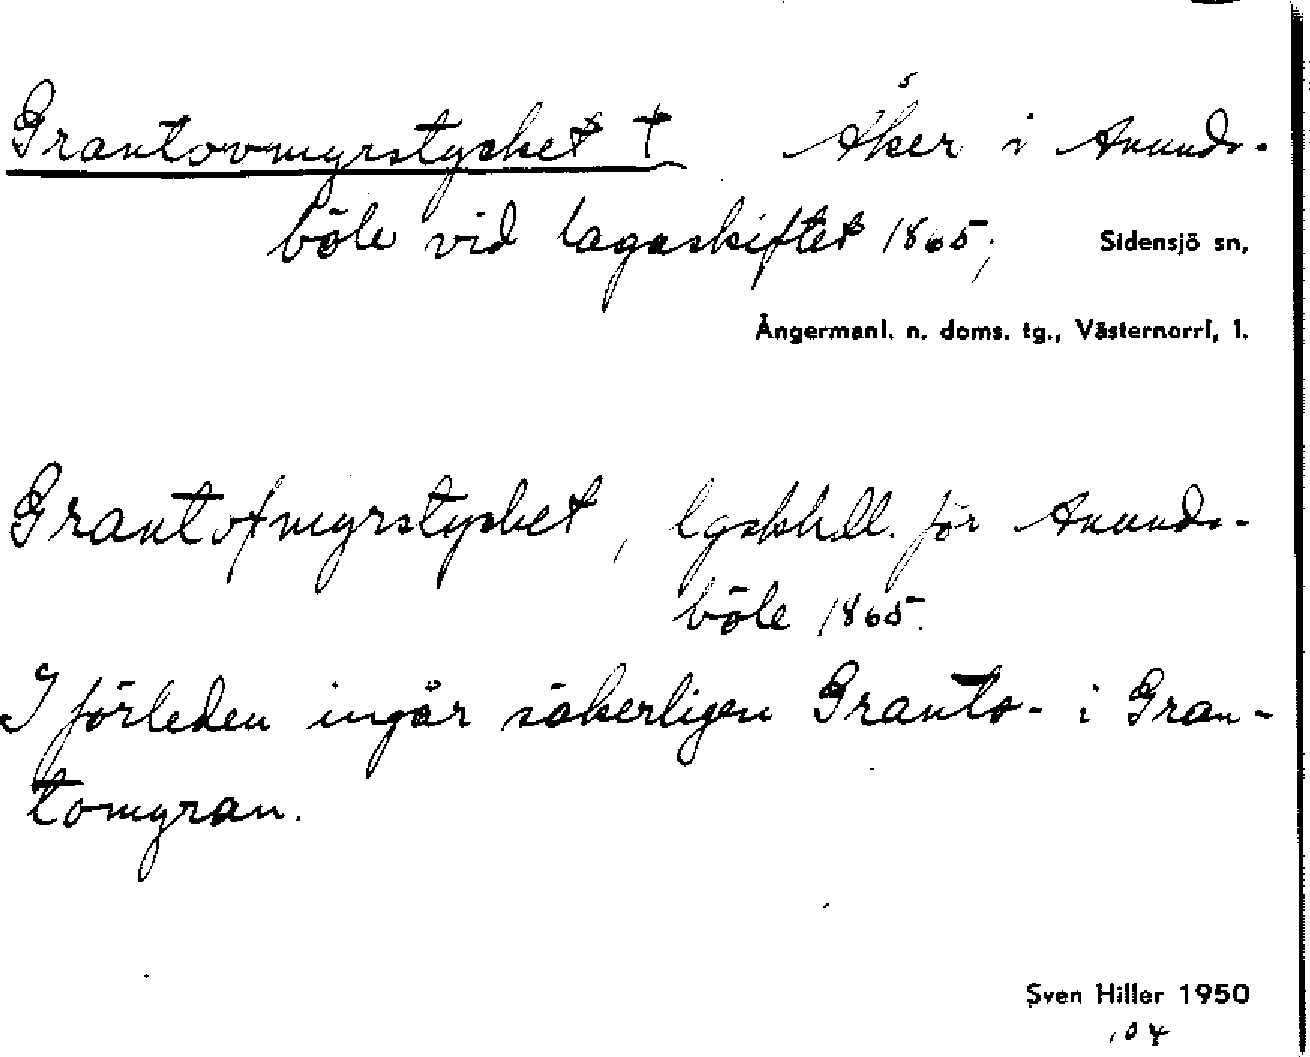 Grantovmyrstycket † Åker i Anunds-
böle vid lagaskiftet 1865, Sidensjö sn,
Ångermanl. n. doms. tg., Västernorrl, l.
Grantofmyrstycket, lgskhdl. för Anunds-
böle 1865.
I förleden ingår säkerligen Granto- i Gran-
tomyran.
Sven Hiller 1950
104